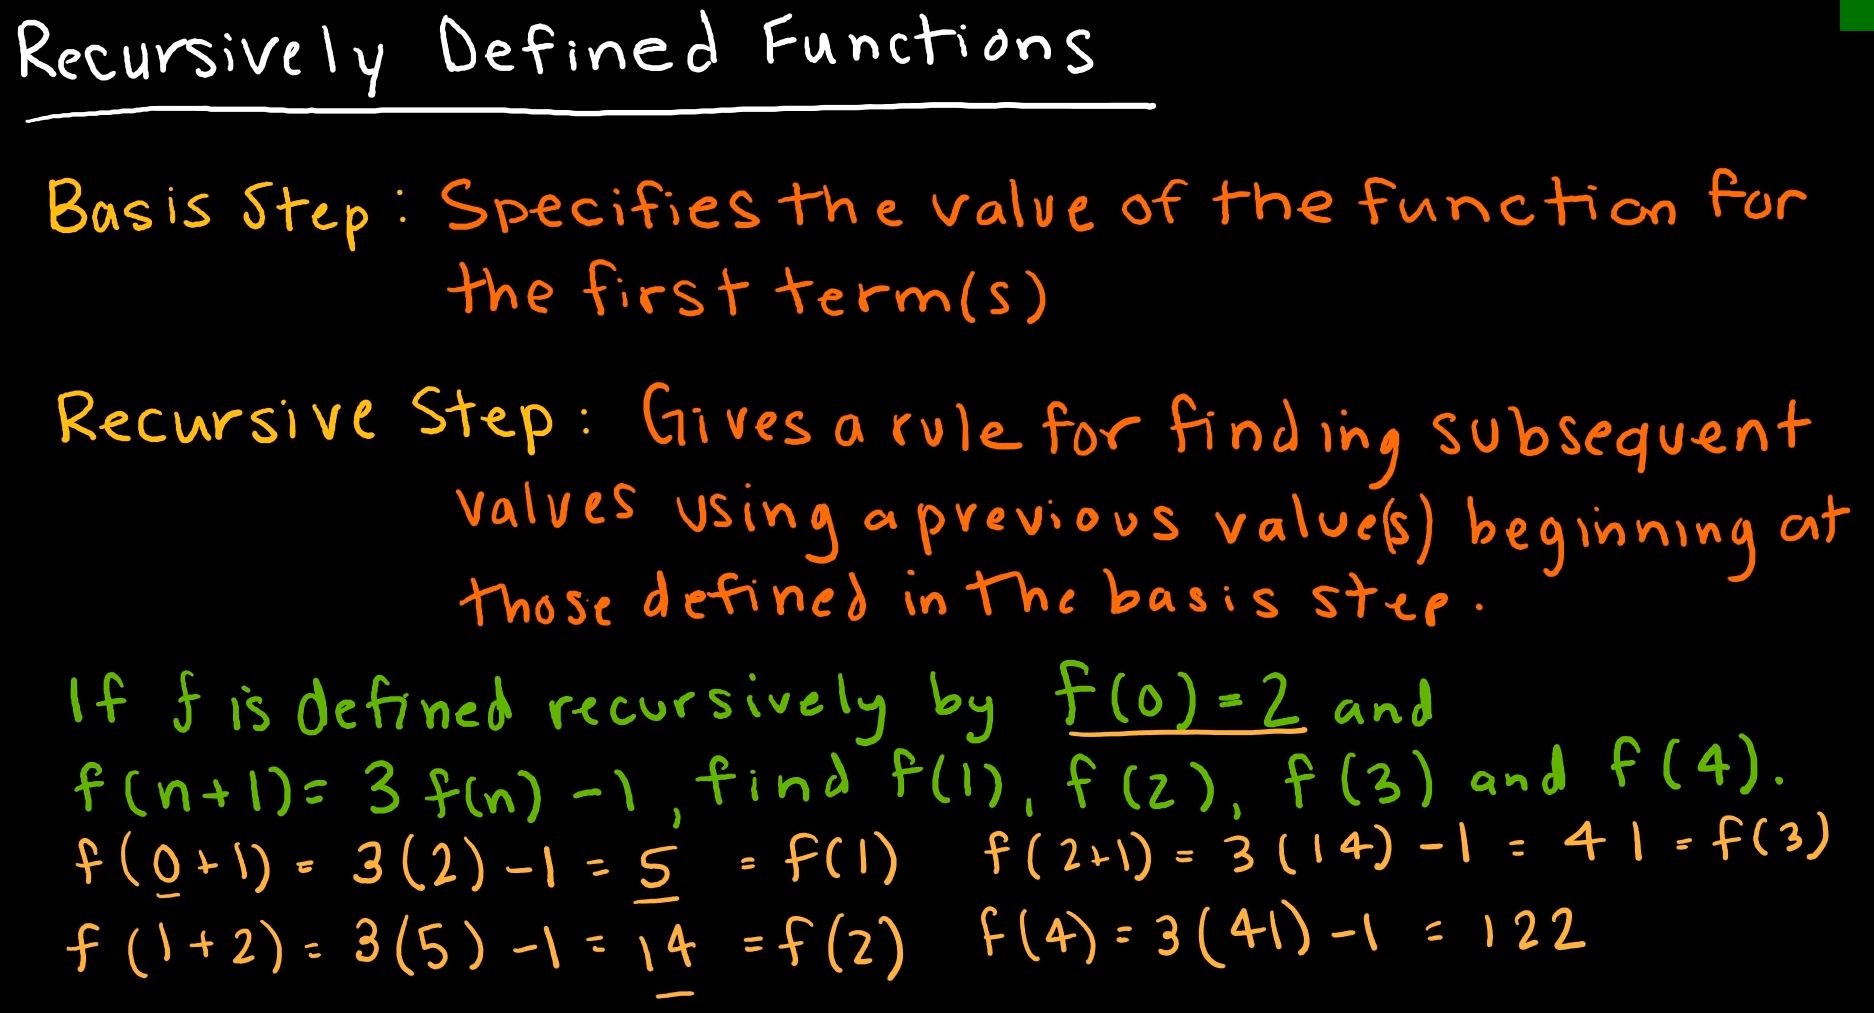 Recursively Defined Functions
Basis Step: Specifies the value of the function for
the first term(s)
Recursive Step: Gives a rule for finding subsequent
values using a previous value(s) beginning at
those defined in the basis step.
If f is defined recursively by f(0)=2 and
f(n+1)= 3 f(n) -1, find f(1), f(2), f(3) and f(4).
f(0+1) = 3(2)-1 = 5 = f(1) f(2+1) = 3(14)-1 = 41 = f(3)
f(1+2) = 3(5)-1 = 14 = f(2) f(4) = 3(41)-1 = 122